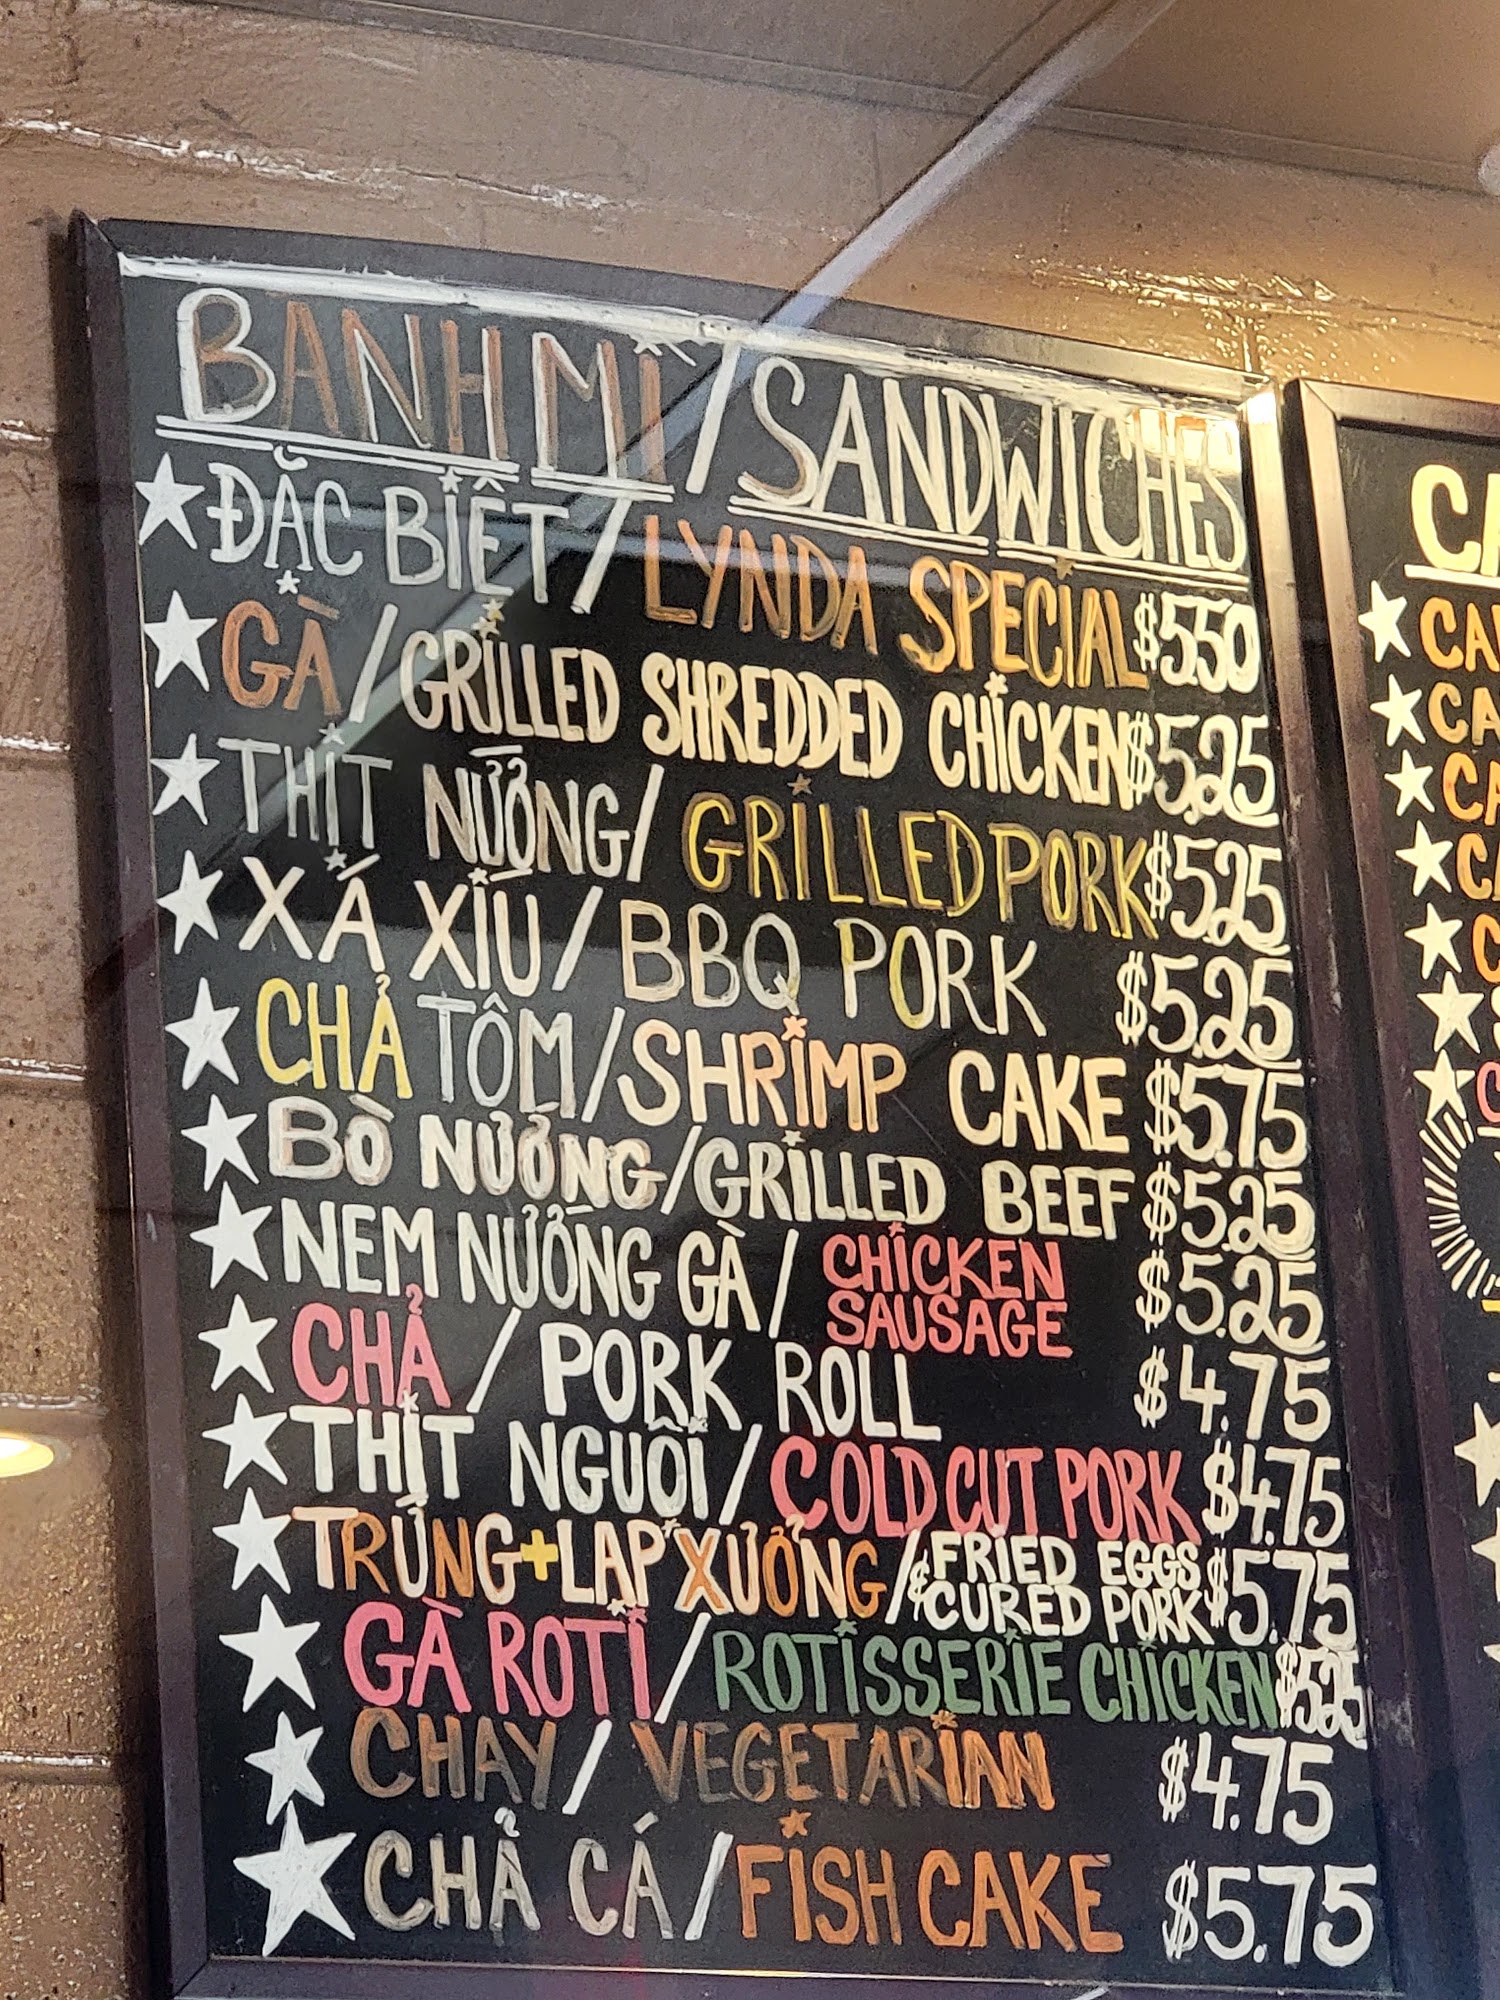 BÀNH MÌ / SANDWICHES
ĐẶC BIỆT / LYNDA SPECIAL $5.50
GÀ / GRILLED SHREDDED CHICKEN $5.25
THỊT NƯỞNG / GRILLED PORK $5.25
XÁ XÍU / BBQ PORK $5.25
CHẢ TÔM / SHRIMP CAKE $5.75
BÒ NƯỞNG / GRILLED BEEF $5.25
NEM NƯỞNG GÀ / CHICKEN SAUSAGE $5.25
CHẢ / PORK ROLL $4.75
THỊT NGUÔI / COLD CUT PORK $4.75
TRỨNG + LAP XƯỞNG / FRIED EGGS & CURED PORK $5.75
GÀ ROTI / ROTISSERIE CHICKEN $5.25
CHAY / VEGETARIAN $4.75
CHẢ CÁ / FISH CAKE $5.75